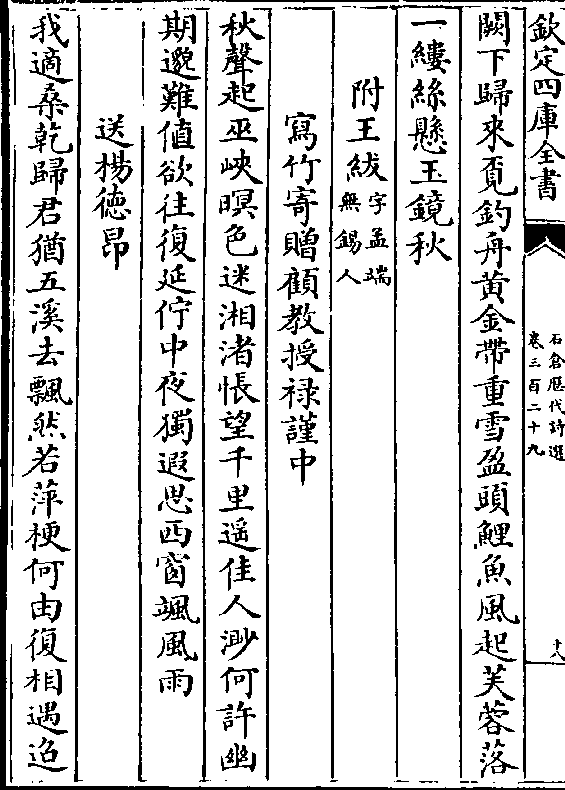 欽定四庫全書
石倉歷代詩選
卷三百二十九
十八
闕下歸來覔釣舟黄金帶重雪盈頭鯉魚風起芙蓉落
一縷絲懸玉鏡秋
附王紱字孟端
無錫人
寫竹寄贈顧教授禄謹中
秋聲起巫峽暝色迷湘渚悵望千里遥佳人渺何許幽
期邈難値欲往復延佇中夜獨遐思西窗颯風雨
送楊德昂
我適桑乾歸君猶五溪去飄然若萍梗何由復相遇迢